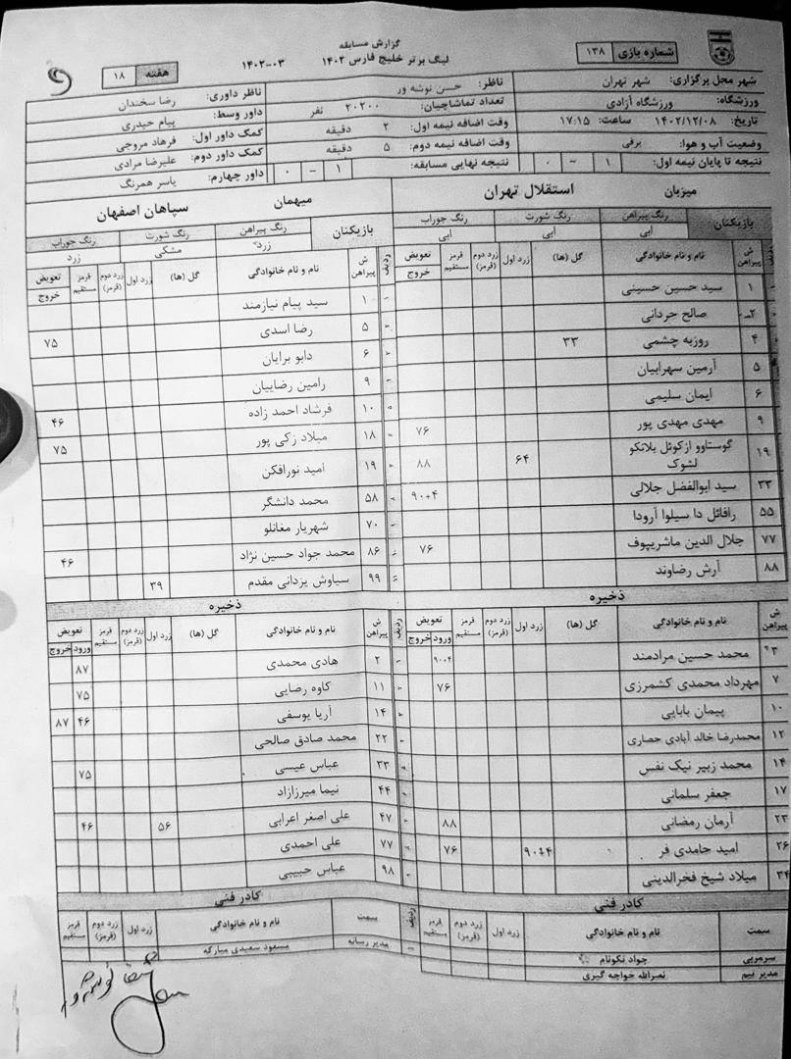 گزارش مسابقه
لیگ برتر خلیج فارس ۱۴۰۲ ۰۳-۱۴۰۲
شماره بازی ۱۳۸
هفته ۱۸
شهر محل برگزاری: شهر تهران
ناظر: حسن نوشه ور
ناظر داوری: رضا سخندان
ورزشگاه: ورزشگاه آزادی
تعداد تماشاچیان: ۲۰۲۰۰ نفر
داور وسط: پیام حیدری
تاریخ: ۱۴۰۲/۱۲/۰۸ ساعت: ۱۷:۱۵
وقت اضافه نیمه اول: ۲ دقیقه
کمک داور اول: فرهاد مروجی
وضعیت آب و هوا: برفی
وقت اضافه نیمه دوم: ۵ دقیقه
کمک داور دوم: علیرضا مرادی
نتیجه تا پایان نیمه اول: ۱ - ۰
نتیجه نهایی مسابقه: ۱ - ۰
داور چهارم: یاسر همرنگ
میزبان استقلال تهران
بازیکنان رنگ پیراهن رنگ شورت رنگ جوراب
آبی آبی آبی
ش پیراهن نام و نام خانوادگی گل (ها) زرد اول زرد دوم (قرمز) قرمز مستقیم تعویض
خروج
۱ سید حسین حسینی
۲ صالح حردانی
۴ روزبه چشمی ۳۳
۵ آرمین سهرابیان
۶ ایمان سلیمی
۹ مهدی مهدی پور ۷۶
۱۹ گوستاوو ازکوئل بلانکو لشوک ۶۴ ۸۸
۳۳ سید ابوالفضل جلالی ۹۰+۴
۵۵ رافائل دا سیلوا آرودا
۷۷ جلال الدین ماشریپوف ۷۶
۸۸ آرش رضاوند
ذخیره
ش پیراهن نام و نام خانوادگی گل (ها) زرد اول زرد دوم (قرمز) قرمز مستقیم تعویض
ورود خروج
۳ محمد حسین مرادمند ۹۰+۴
۷ مهرداد محمدی کشمرزی ۷۶
۱۰ پیمان بابایی
۱۲ محمدرضا خالد آبادی حصاری
۱۴ محمد زبیر نیک نفس
۱۷ جعفر سلمانی
۲۳ آرمان رمضانی ۸۸
۲۶ امید حامدی فر ۹۰+۴ ۷۶
۳۴ میلاد شیخ فخرالدینی
کادر فنی
سمت نام و نام خانوادگی زرد اول زرد دوم (قرمز) قرمز مستقیم
سرمربی جواد نکونام
مدیر تیم نصراله خواجه گیری
میهمان سپاهان اصفهان
بازیکنان رنگ پیراهن رنگ شورت رنگ جوراب
زرد مشکی زرد
ردیف ش پیراهن نام و نام خانوادگی گل (ها) زرد اول زرد دوم (قرمز) قرمز مستقیم تعویض
خروج
۱ سید پیام نیازمند
۵ رضا اسدی ۷۵
۶ دابو برایان
۹ رامین رضاییان
۱۰ فرشاد احمد زاده ۴۶
۱۸ میلاد زکی پور ۷۵
۱۹ امید نورافکن
۵۸ محمد دانشگر
۷۰ شهریار مغانلو
۸۶ محمد جواد حسین نژاد ۴۶
۹۹ سیاوش یزدانی مقدم ۳۹
ذخیره
ردیف ش پیراهن نام و نام خانوادگی گل (ها) زرد اول زرد دوم (قرمز) قرمز مستقیم تعویض
ورود خروج
۲ هادی محمدی ۸۷
۱۱ کاوه رضایی ۷۵
۱۴ آریا یوسفی ۴۶ ۸۷
۲۲ محمد صادق صالحی
۳۳ عباس عیسی ۷۵
۴۴ نیما میرزازاد
۴۷ علی اصغر اعرابی ۵۶ ۴۶
۷۷ علی احمدی
۹۸ عباس حبیبی
کادر فنی
ردیف سمت نام و نام خانوادگی زرد اول زرد دوم (قرمز) قرمز مستقیم
مدیر رسانه مسعود سعیدی مبارکه